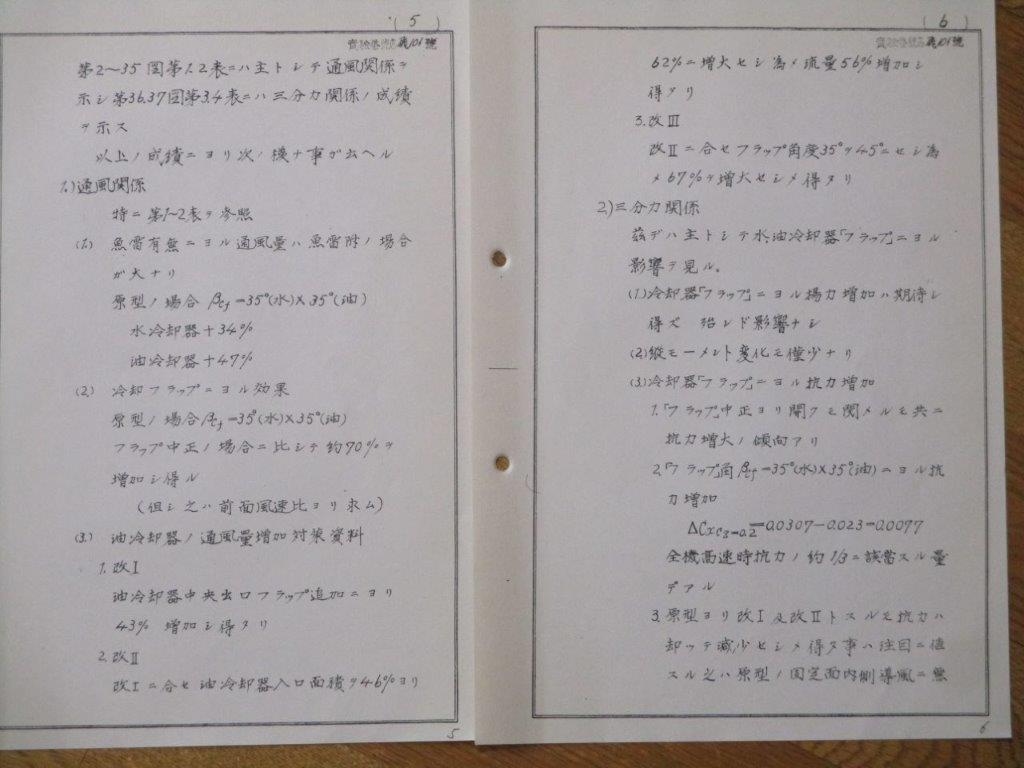 (5)
第2～35図第1.2表ニハ主トシテ通風関係ヲ
示シ第36.37図第3.4表ニハ三分力関係ノ成績
ヲ示ス
以上ノ成績ニヨリ次ノ様ナ事が云ヘル
1.)通風関係
特ニ第1~2表ヲ参照
(1.) 魚雷有無ニヨル通風量ハ魚雷附ノ場合
が大ナリ
原型ノ場合 βcf=35°(水)×35°(油)
水冷却器+34%
油冷却器+47%
(2.) 冷却フラップニヨル効果
原型ノ場合βcf=35°(水)×35°(油)
フラップ中正ノ場合ニ比シテ約70%ヲ
増加シ得ル
(但シ之ハ前面風速比ヨリ求ム)
(3.) 油冷却器ノ通風量増加対策資料
1. 改I
油冷却器中央出口フラップ追加ニヨリ
43% 増加シ得タリ
2. 改II
改Iニ合セ油冷却器入口面積ヲ46%ヨリ
5
(6)
62%ニ増大セシ為メ流量56%増加シ
得タリ
3. 改III
改IIニ合セフラップ角度35°ヲ45°ニセシ為
メ67%ヲ増大セシメ得タリ
2.)三分力関係
茲デハ主トシテ水、油冷却器「フラップ」ニヨル
影響ヲ見ル。
(1.)冷却器「フラップ」ニヨル揚力増加ハ期待シ
得ズ 殆ンド影響ナシ
(2)縦モーメント変化モ僅少ナリ
(3.)冷却器「フラップ」ニヨル抗力増加
1.「フラップ」中正ヨリ開クモ閉メルモ共ニ
抗力増大ノ傾向アリ
2.「フラップ」角βcf=35°(水)×35°(油)ニヨル抗
力増加
ΔCxc3=0.2=0.0307-0.023=0.0077
全機高速時抗力ノ約1/3ニ該当スル量
デアル
3. 原型ヨリ改I及改IIトスルモ抗力ハ
却ッテ減少セシメ得タ事ハ注目ニ値
スル之ハ原型ノ固定面内側導風ニ無
6